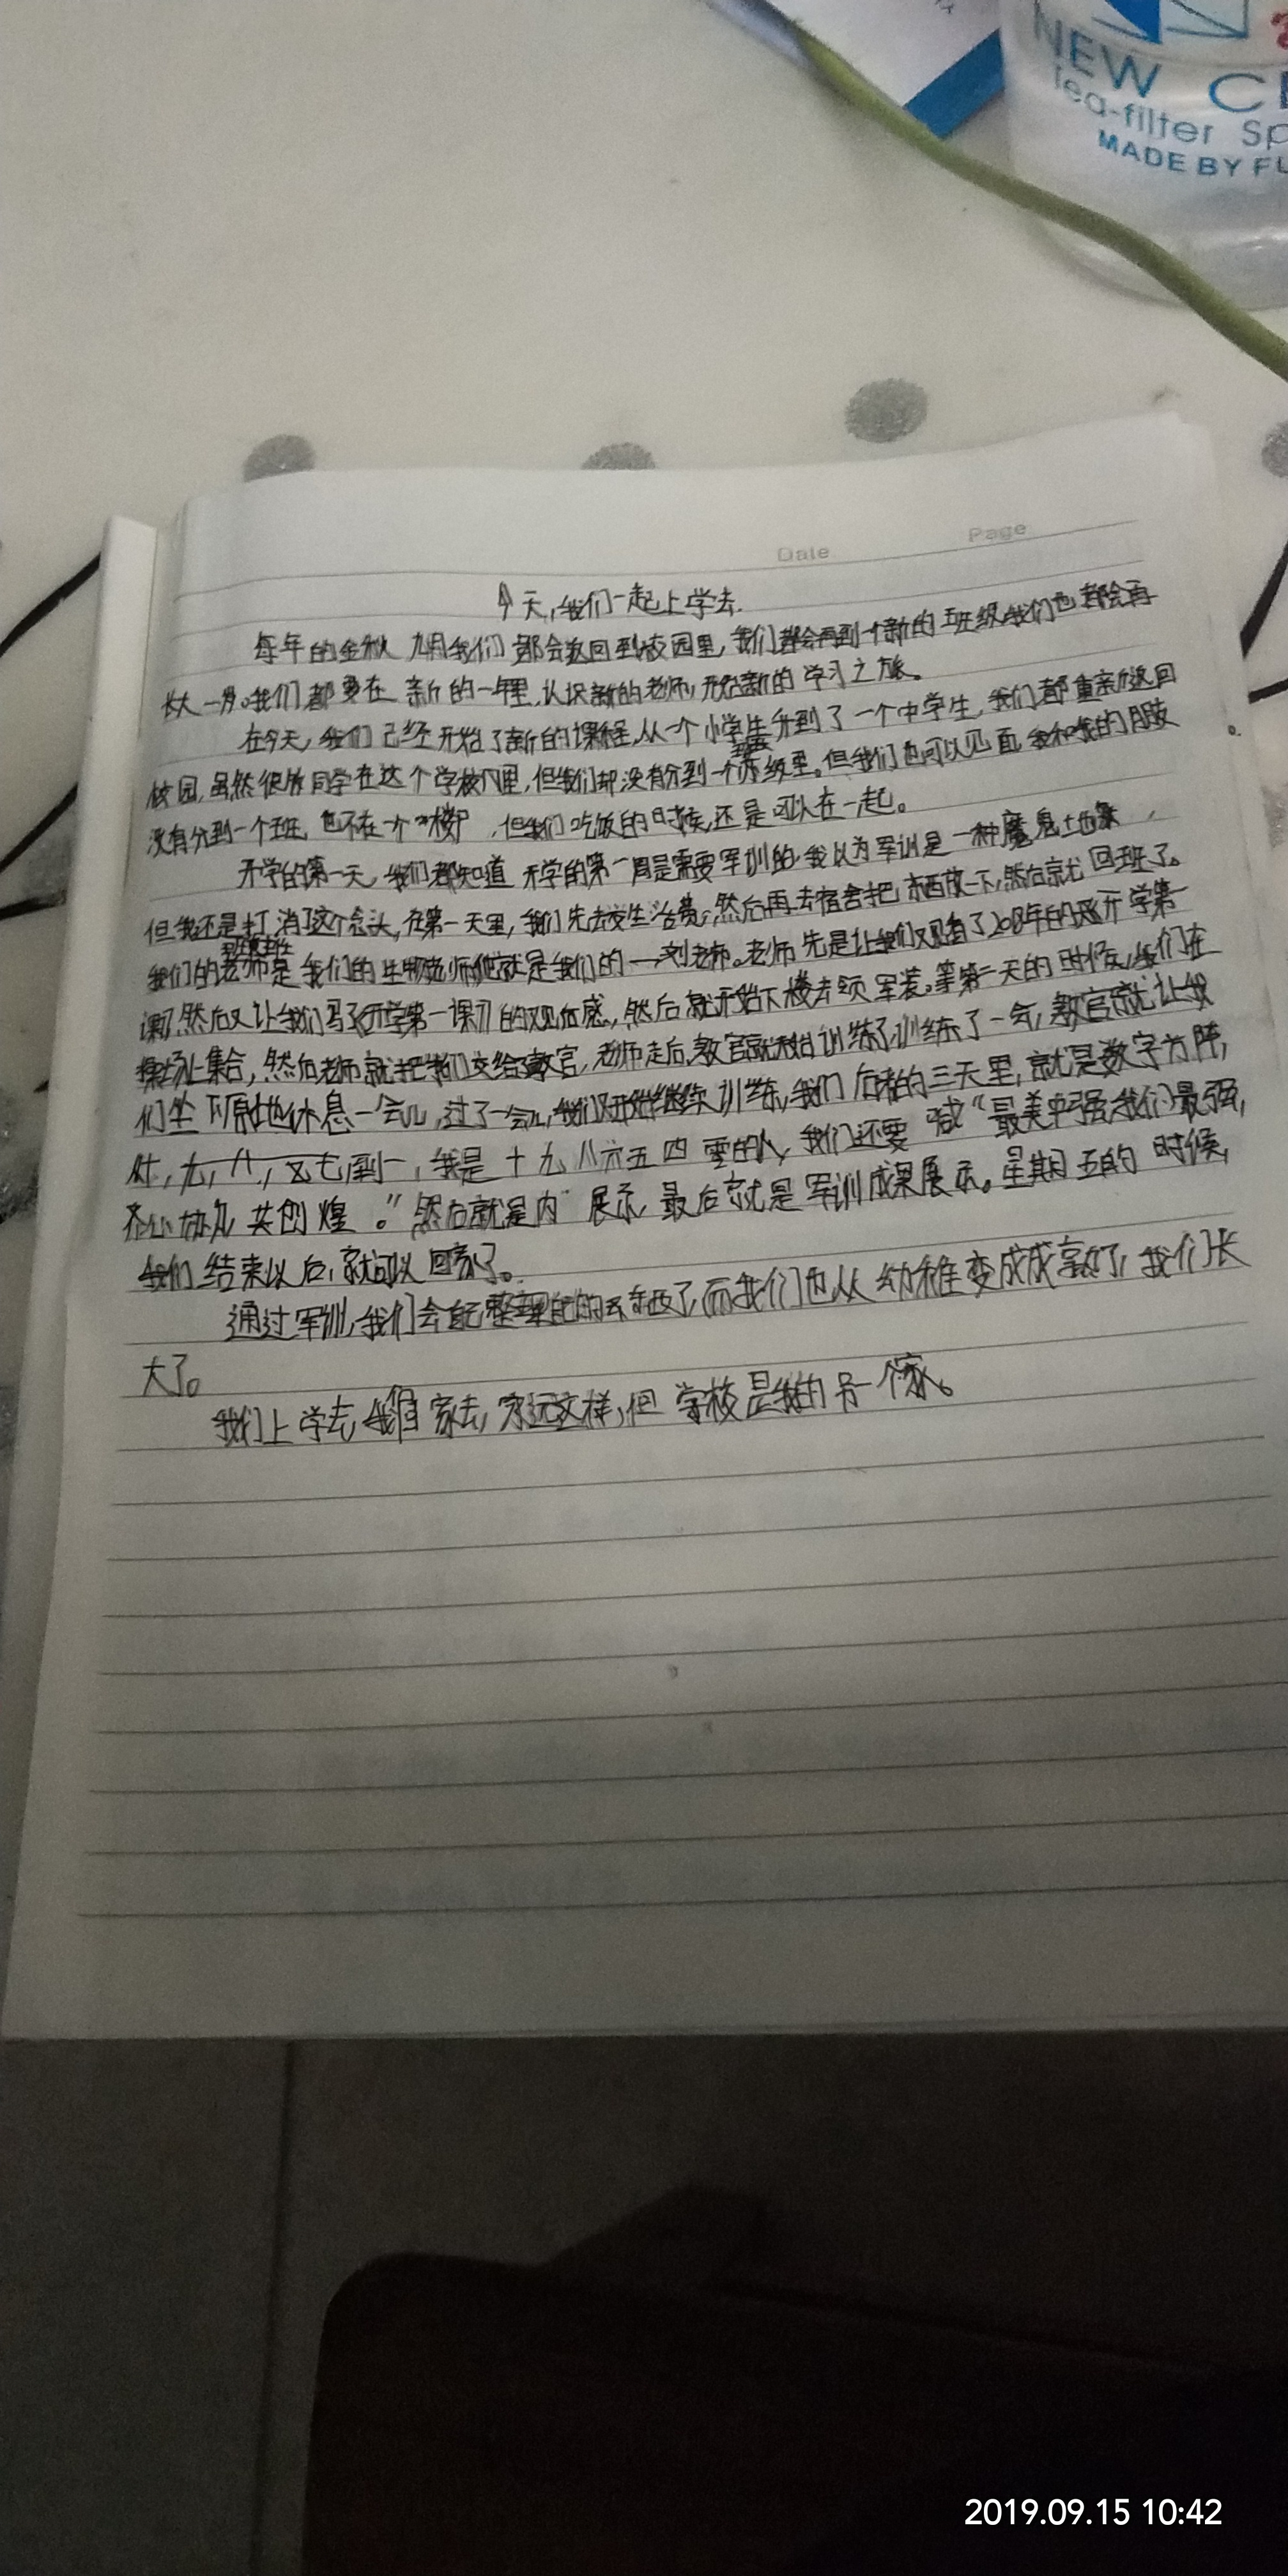 NEW C
Tea-filter Sp
MADE BY FU
Date Page
今天,我们一起上学去.
每年的金秋九月我们都会返回到校园里,我们都会再到一个新的班级,我们也都会再
长大一岁。我们都要在新的一年里,认识新的老师,开始新的学习之旅。
在今天,我们已经开始了新的课程,从一个小学生升到了一个中学生,我们都重新返回
校园,虽然很多同学在这个学校里,但我们却没有分到一个班级里。但我们也可以见面,我和我的朋友
没有分到一个班,也不在一个楼,但我们吃饭的时候,还是可以在一起。
开学的第一天,我们都知道开学的第一周是需要军训的,我以为军训是一种魔鬼
但我还是打消了这个念头,在第一天里,我们先去交生活费,然后再去宿舍把东西放一下,然后就回班了。
我们的班主任是我们的生物老师他就是我们的一刘老师。老师先是让我们观看了2018年的开学第一
课》,然后又让我们写《开学第一课》的观后感,然后就开始下楼去领军装。等第二天的时候,我们在
操场上集合,然后老师就把我们交给了教官,老师走后,教官就开始训练了,训练了一会,教官就让我
们坐下原地休息一会儿,过了一会儿,我们又开始继续训练,我们后者的三天里,就是数字方阵,
九,八,到一,我是十九八六五四零的人,我们还要喊“最美中强,我们最强,
齐心协力,共创煌。”然后就是内 展示,最后就是军训成果展示。星期五的时候,
我们结束以后,就可以回家了。
通过军训,我们会自己整理自己的东西了,而我们也从幼稚变成成熟了,我们长
大了。
我们上学去,我们回家去,永远这样,但学校是我的另一个家。
2019.09.15 10:42